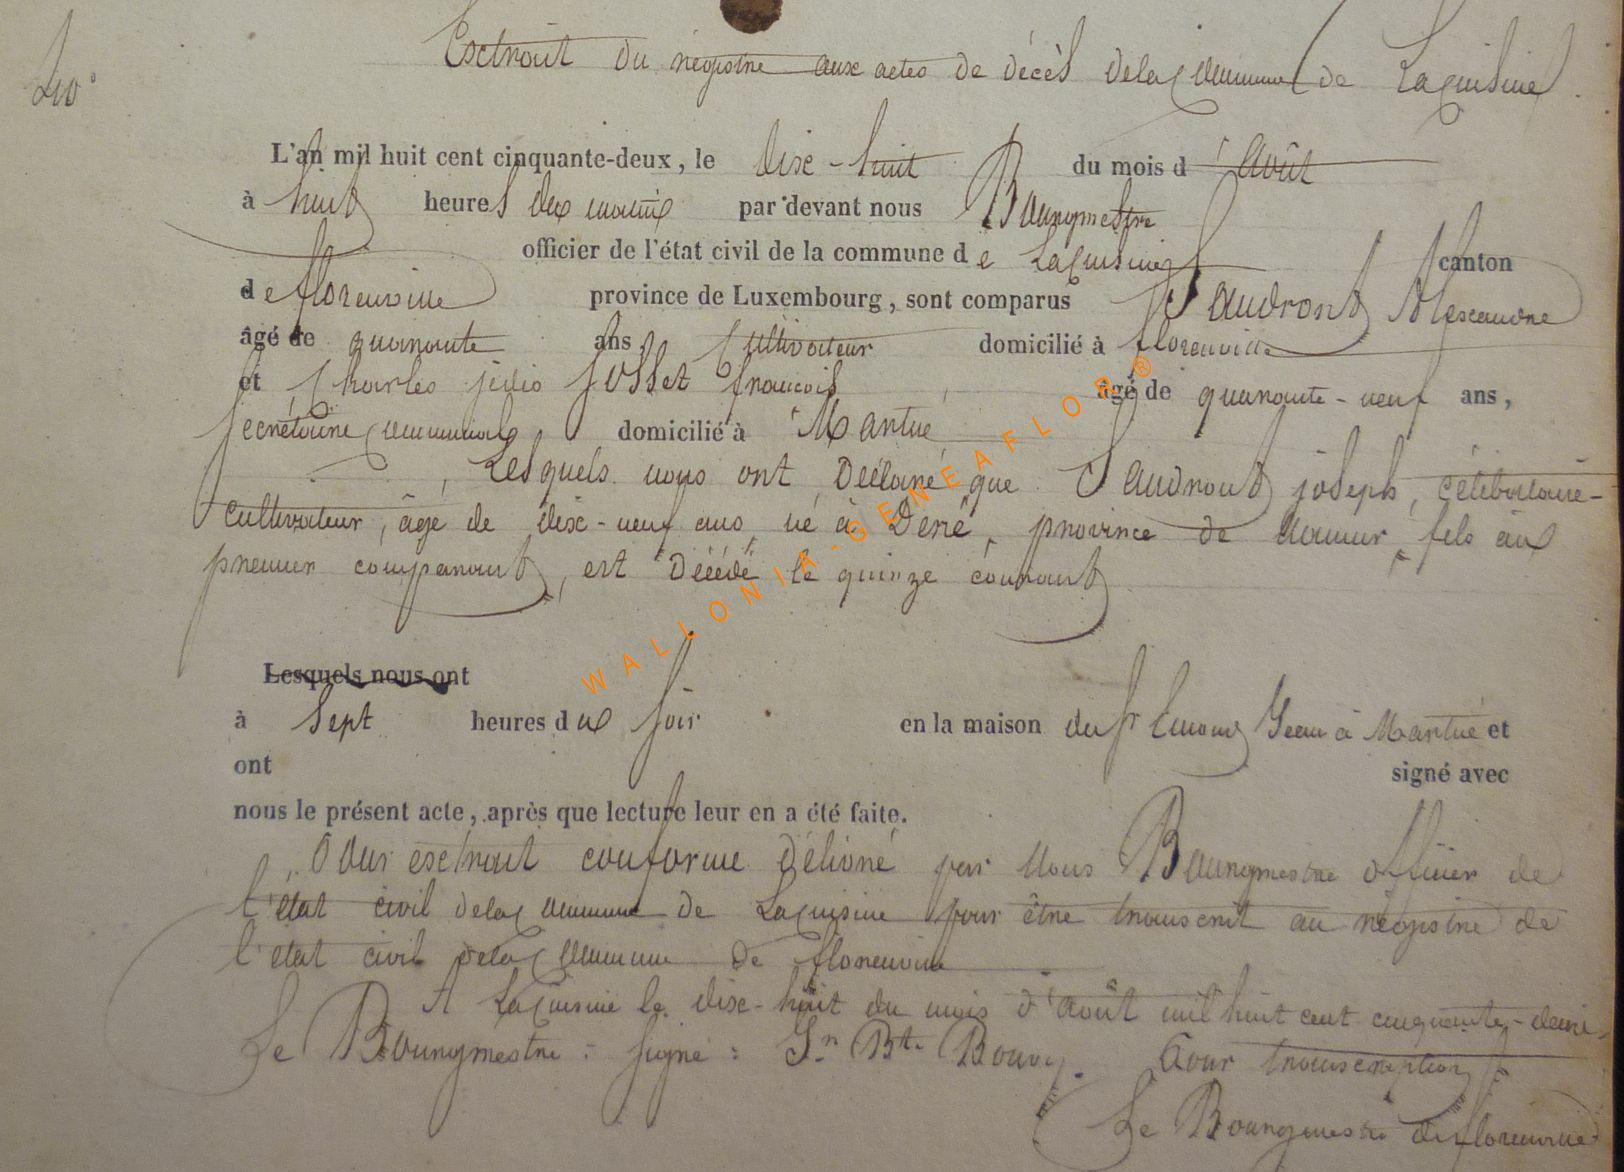 Extrait du régistre aux actes de décès dela Commune de Lacuisine
L'an mil huit cent cinquante-deux, le dix-huit du mois d'Août
à huit heures du matin par devant nous Bourgmestre
officier de l'état civil de la commune de Lacuisine canton
de florenville province de Luxembourg, sont comparus Saudront Alexandre
âgé de quarante ans, Cultivateur domicilié à florenville
et Charles jules Josset françois âgé de quarante-neuf ans,
Secrétaire communal domicilié à Martué
Lesquels nous ont Déclaré que Saudront joseph, célibataire-
cultivateur, âgé de dix-neuf ans, né à Dené, province de Namur, fils au
premier comparant, est Décédé le quinze courant
Lesquels nous ont
à Sept heures du soir en la maison du Sr Jean à Martué et
ont signé avec
nous le présent acte, après que lecture leur en a été faite.
Pour extrait conforme Délivré par Nous Bourgmestre officier de
l'état civil dela Commune de Lacuisine pour être transcrit au régistre de
l'état civil dela Commune de florenville
A Lacuisine le dix-huit du mois d'août mil huit cent cinquante-deux.
Le Bourgmestre: signé: Jn Bte Bouvy. Pour transcription
Le Bourgmestre de florenville
WALLONIA-GENEAFLOR®